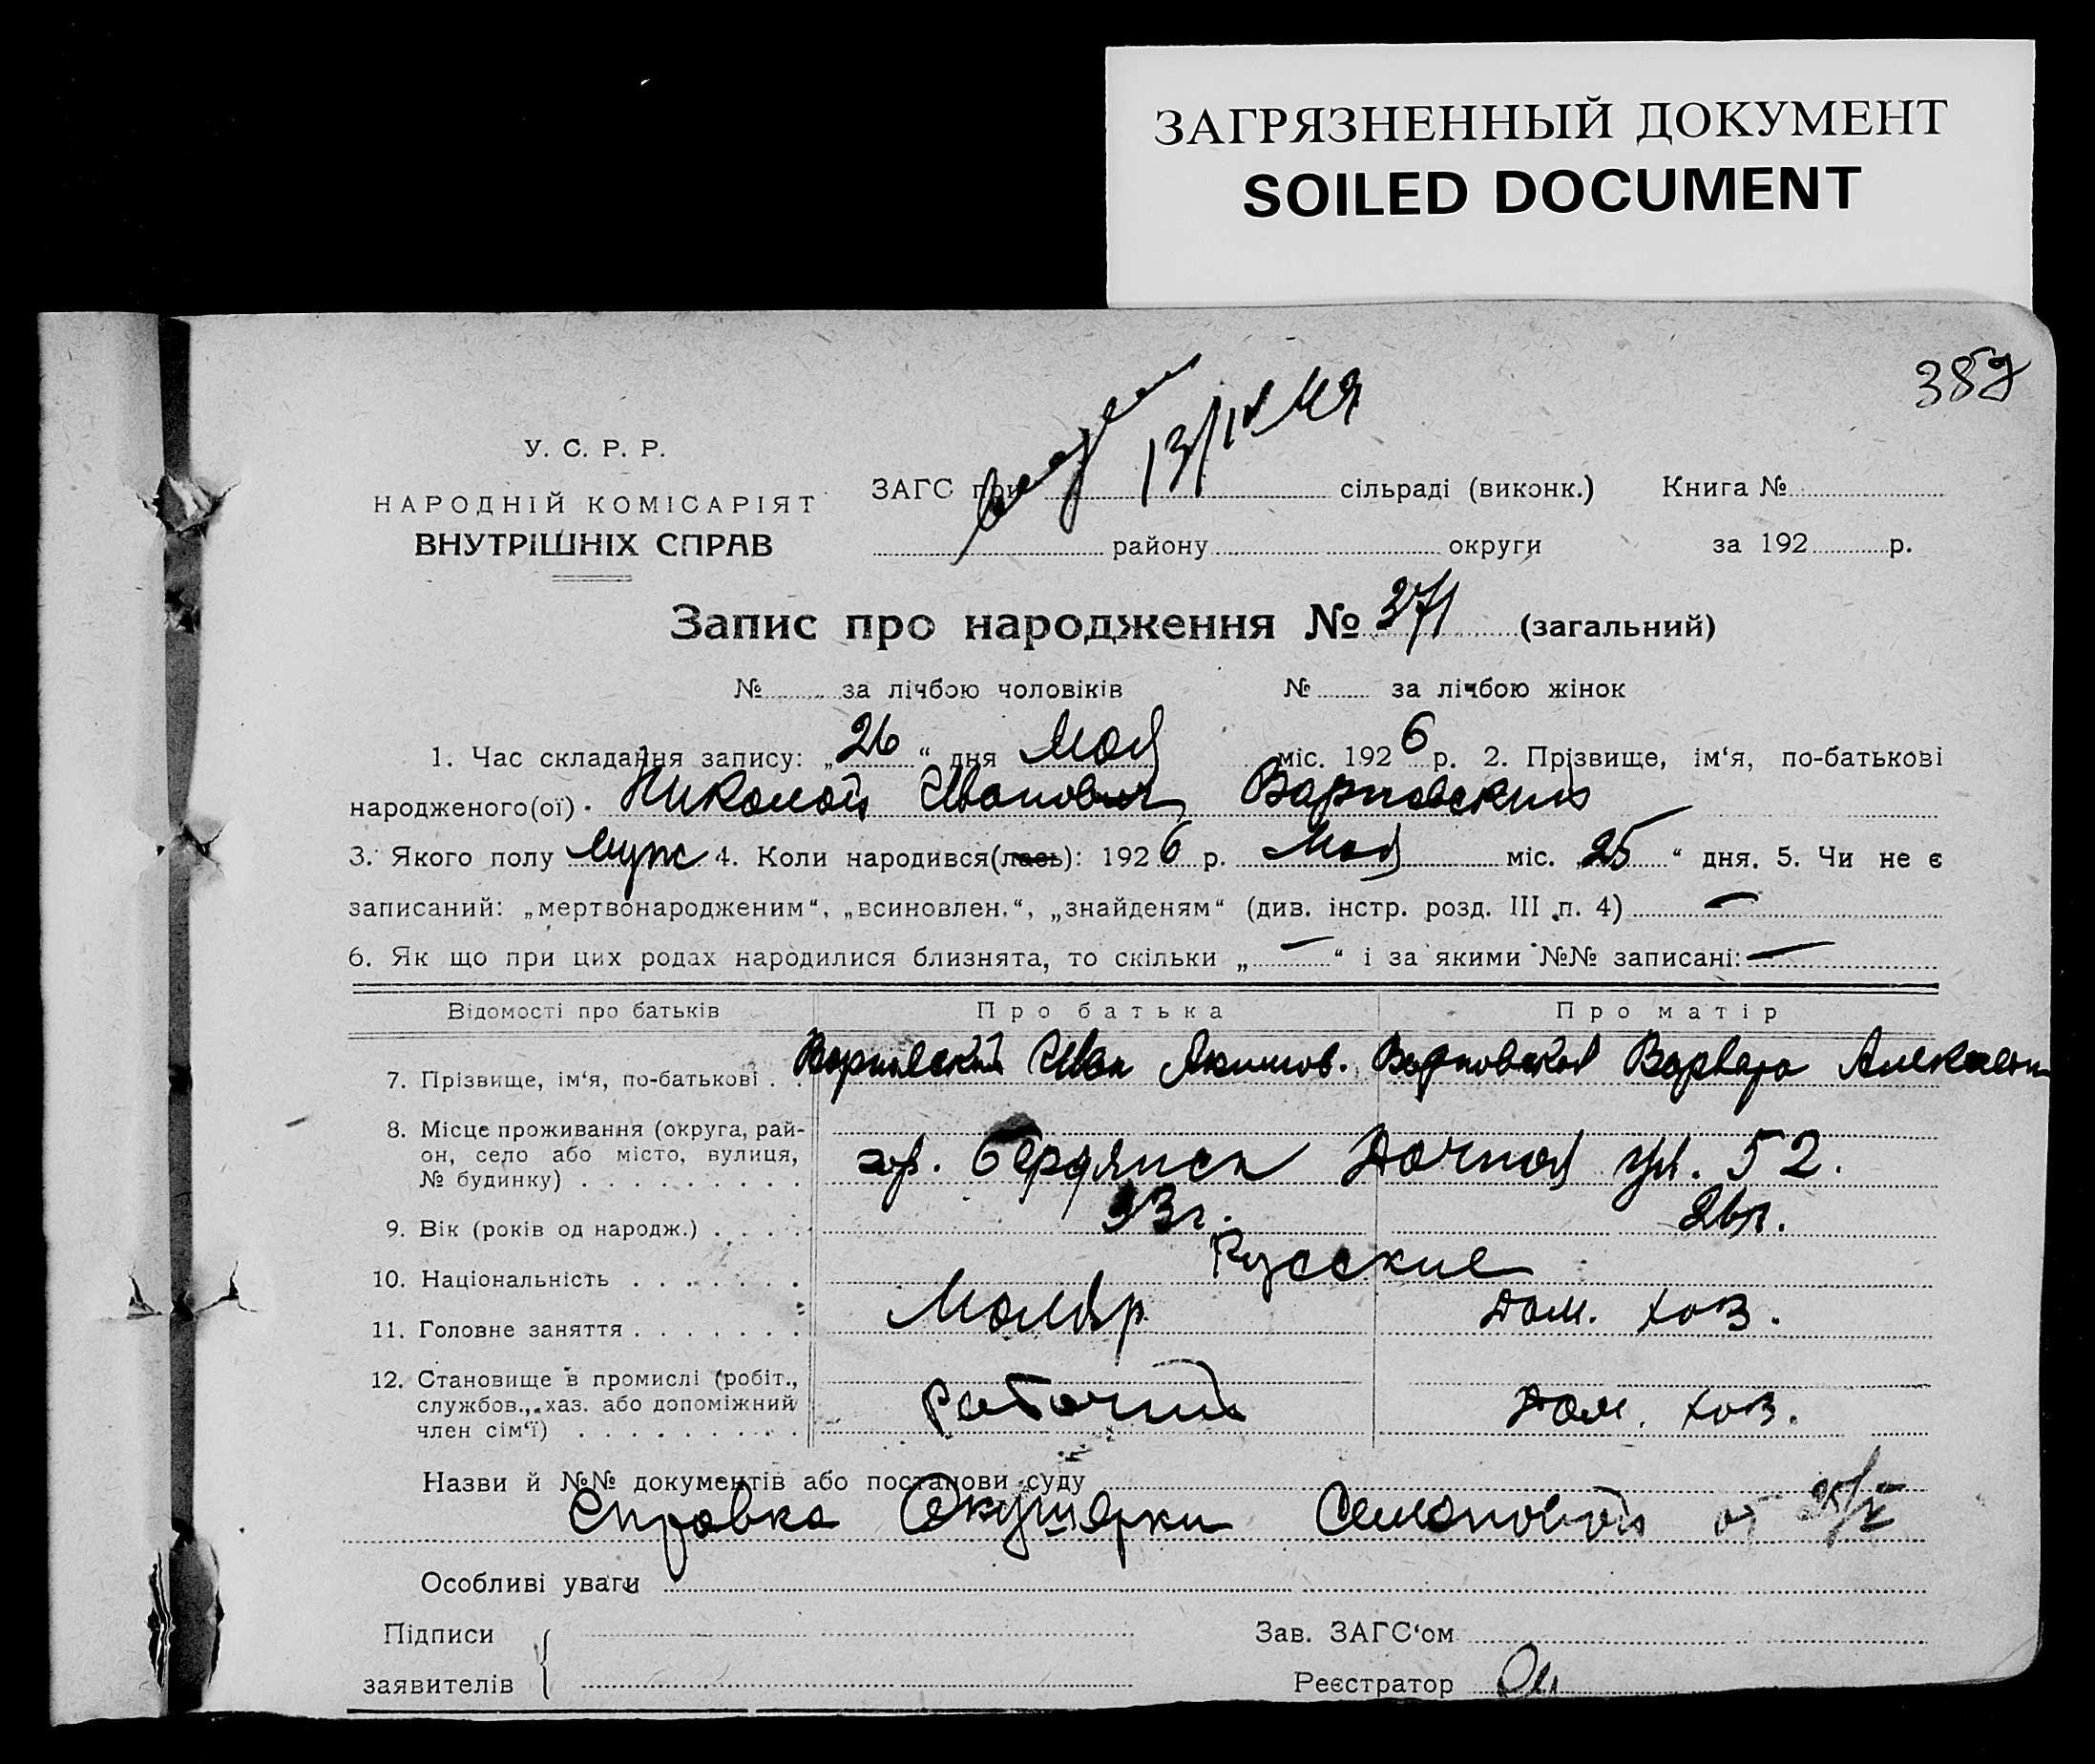 ЗАГРЯЗНЕННЫЙ ДОКУМЕНТ
SOILED DOCUMENT
У. С. Р. Р.
НАРОДНІЙ КОМІСАРІЯТ
ВНУТРІШНІХ СПРАВ
ЗАГС при сільраді (виконк.) Книга №
району округи за 192 р.
Запис про народження № 371 (загальний)
№ за лічбою чоловіків № за лічбою жінок
1. Час складання запису: „26“ дня Мая міс. 1926 р. 2. Прізвище, ім‘я, по-батькові
народженого(ої) Николай Иванович Варновский
3. Якого полу муж 4. Коли народився(лась): 1926 р. Мая міс. „25“ дня. 5. Чи не є
записаний: „мертвонародженим“, „всиновлен.“, „знайденям“ (див. інстр. розд. III п. 4) —
6. Як що при цих родах народилися близнята, то скільки „—“ і за якими №№ записані: —
Відомості про батьків Про батька Про матір
7. Прізвище, ім‘я, по-батькові Варновский Иван Акимов. Варновская Варвара
8. Місце проживання (округа, рай-
он, село або місто, вулиця,
№ будинку) гор. Бердянск Дачная ул. 52.
9. Вік (років од народж.) 33 г. 26 л.
10. Національність Русские
11. Головне заняття Маляр дом. хоз.
12. Становище в промислі (робіт.,
службов., хаз. або допоміжний
член сім‘ї) рабочий дом. хоз.
Назви й №№ документів або постанови суду
Справка Акушерки Семановой от 25/V
Особливі уваги
Підписи
заявителів
Зав. ЗАГС‘ом
Реєстратор